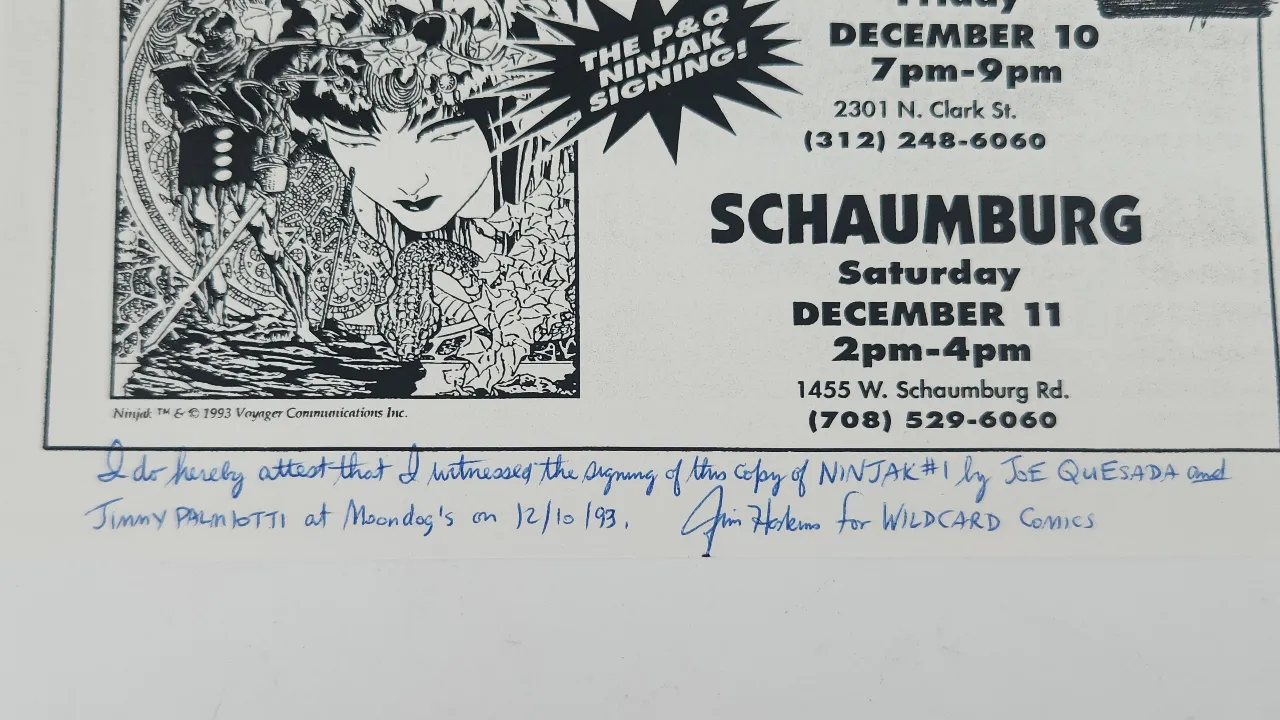 THE P&Q
NINJAK
SIGNING!
Friday
DECEMBER 10
7pm-9pm
2301 N. Clark St.
(312) 248-6060
SCHAUMBURG
Saturday
DECEMBER 11
2pm-4pm
1455 W. Schaumburg Rd.
(708) 529-6060
Ninjak ™ & © 1993 Voyager Communications Inc.
I do hereby attest that I witnessed the signing of this copy of NINJAK #1 by JOE QUESADA and
JIMMY PALMIOTTI at Moondog's on 12/10/93. Jim Hoskins for WILDCARD COMICS